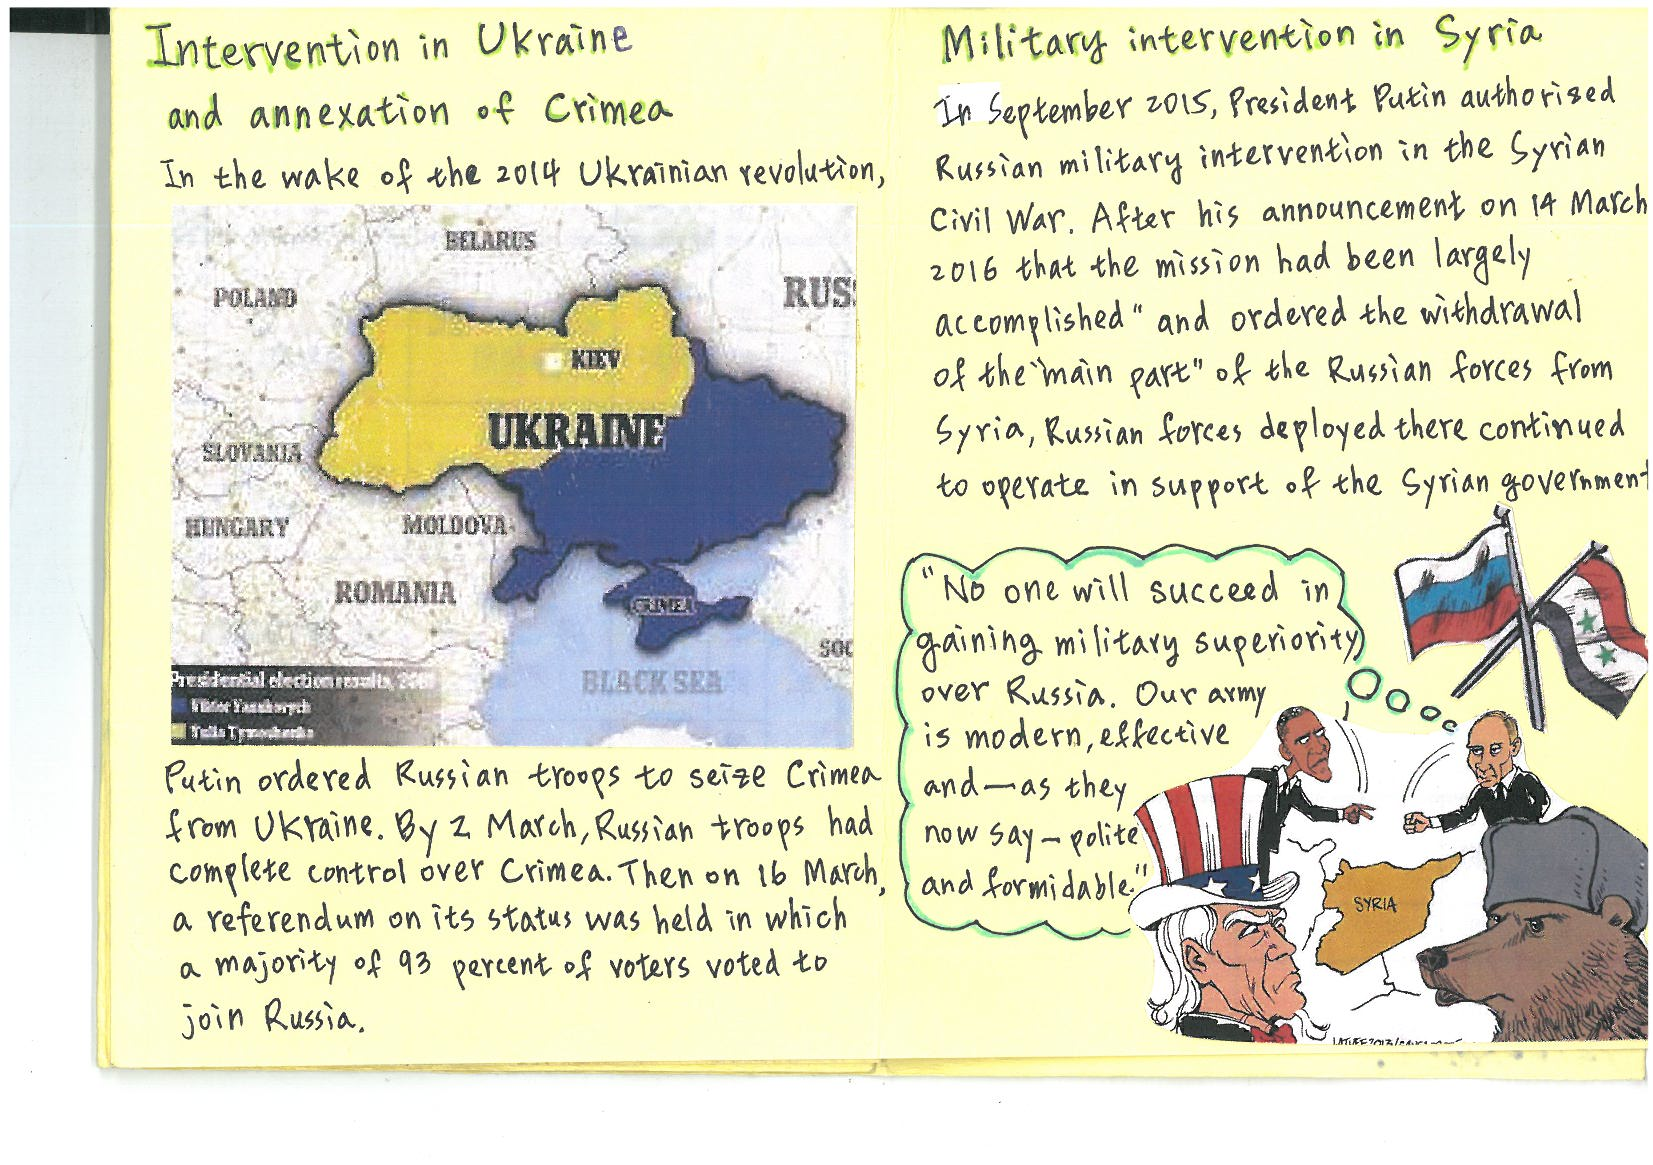 Intervention in Ukraine
and annexation of Crimea
In the wake of the 2014 Ukrainian revolution,
BELARUS
POLAND
RUS
KIEV
UKRAINE
SLOVANIA
HUNGARY
MOLDOVA
ROMANIA
CRIMEA
SOC
BLACK SEA
Presidential election results,
Viktor Yanukovych
Yulia Tymoshenko
Putin ordered Russian troops to seize Crimea
from Ukraine. By 2 March, Russian troops had
complete control over Crimea. Then on 16 March,
a referendum on its status was held in which
a majority of 93 percent of voters voted to
join Russia.
Military intervention in Syria
In September 2015, President Putin authorised
Russian military intervention in the Syrian
Civil War. After his announcement on 14 March
2016 that the mission had been largely
accomplished" and ordered the withdrawal
of the "main part" of the Russian forces from
Syria, Russian forces deployed there continued
to operate in support of the Syrian government
"No one will succeed in
gaining military superiority
over Russia. Our army
is modern, effective
and—as they
now say—polite
and formidable."
SYRIA